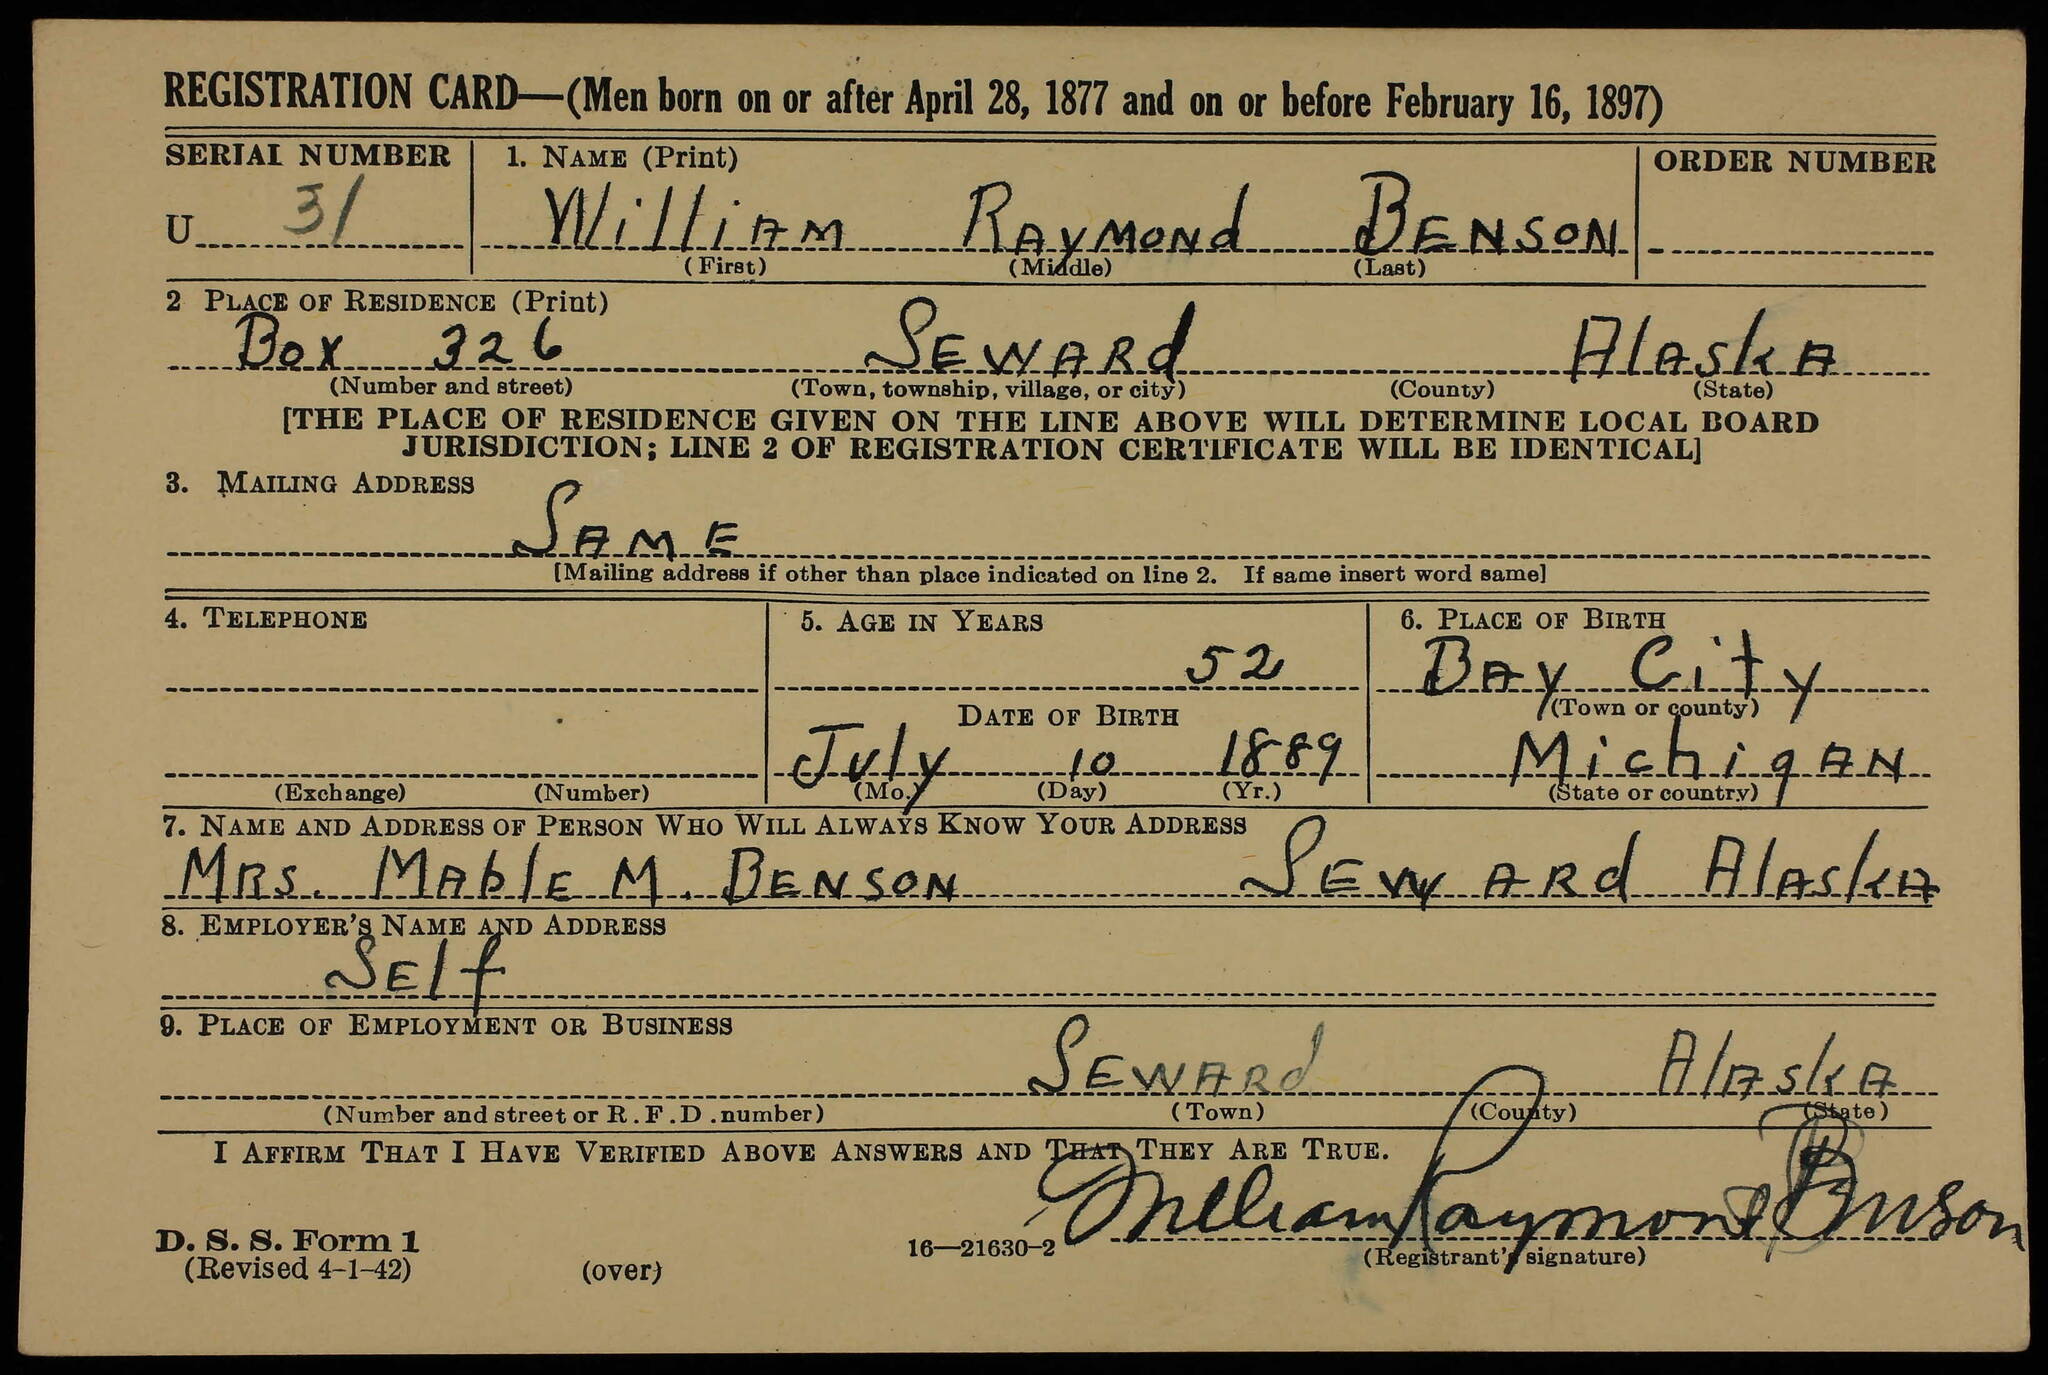 REGISTRATION CARD—(Men born on or after April 28, 1877 and on or before February 16, 1897)
SERIAL NUMBER 1. NAME (Print) ORDER NUMBER
U 31 William RAYMONd BENSON
(First) (Middle) (Last)
2 PLACE OF RESIDENCE (Print)
Box 326 SEWARd AlAskA
(Number and street) (Town, township, village, or city) (County) (State)
[THE PLACE OF RESIDENCE GIVEN ON THE LINE ABOVE WILL DETERMINE LOCAL BOARD
JURISDICTION; LINE 2 OF REGISTRATION CERTIFICATE WILL BE IDENTICAL]
3. MAILING ADDRESS
SAME
[Mailing address if other than place indicated on line 2. If same insert word same]
4. TELEPHONE 5. AGE IN YEARS 6. PLACE OF BIRTH
52 BAy City
DATE OF BIRTH (Town or county)
July 10 1889 MichigAN
(Exchange) (Number) (Mo.) (Day) (Yr.) (State or country)
7. NAME AND ADDRESS OF PERSON WHO WILL ALWAYS KNOW YOUR ADDRESS
MRS. MAblE M. BENSON SEWARd AlAskA
8. EMPLOYER'S NAME AND ADDRESS
SElf
9. PLACE OF EMPLOYMENT OR BUSINESS
SEWARd AlAskA
(Number and street or R.F.D. number) (Town) (County) (State)
I AFFIRM THAT I HAVE VERIFIED ABOVE ANSWERS AND THAT THEY ARE TRUE.
William Raymond Benson
D. S. S. Form 1 16—21630-2 (Registrant's signature)
(Revised 4-1-42) (over)